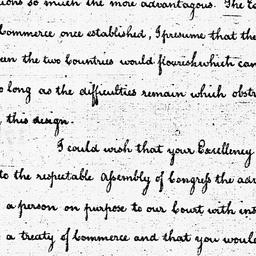 ions so much the more advantagous. The Co
Commerce once established, I presume that the
een the two Countries would flourish which can
o long as the difficulties remain which obst
this design.
I could wish that your Excellency
to the respectable Assembly of Congress the adv
a person on purpose to our Court with inst
a treaty of Commerce and that you would